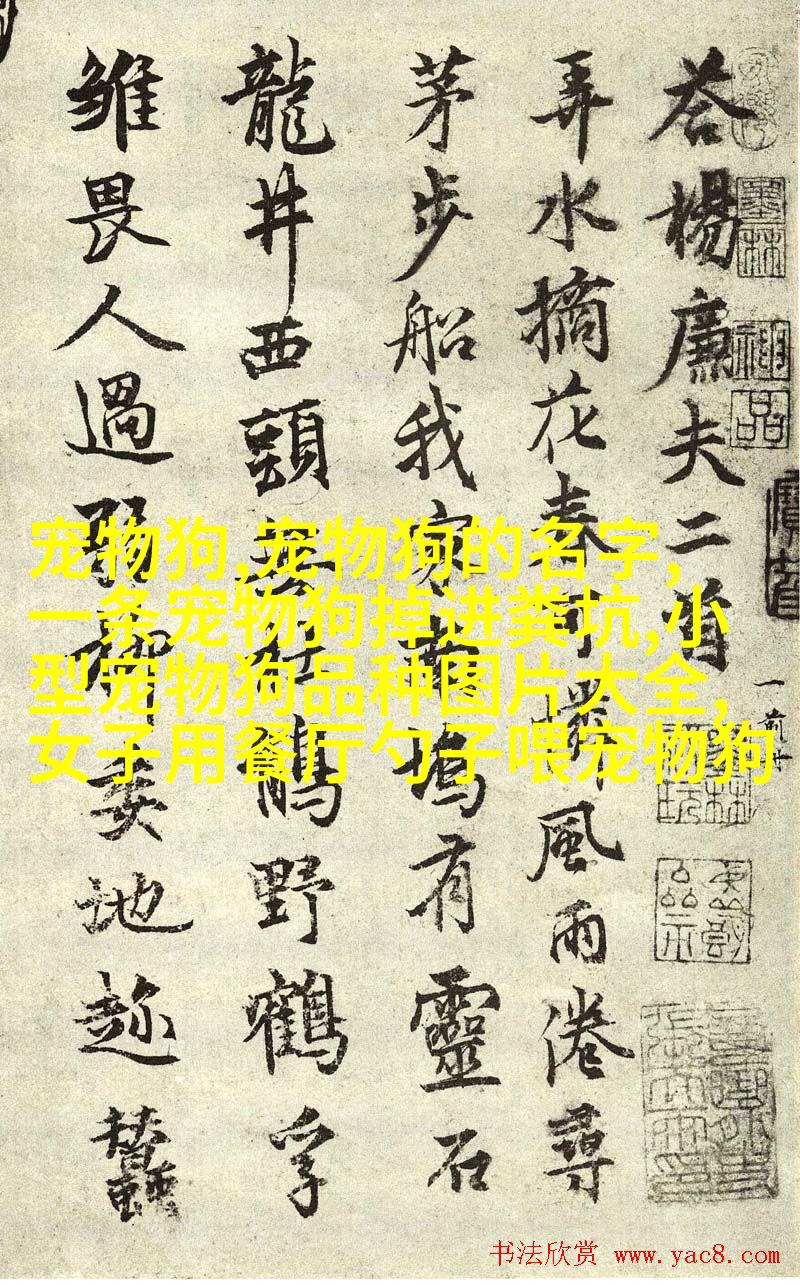 荅楊廉夫二首
弄水摘花春可風雨淹尋
茅步船我家南塢有靈石
龍井西頭無杜鵑野鶴孚
雛畏人過委地蠶
墨林
神品
宠物狗,宠物狗的名字,
一条宠物狗掉进粪坑,小
型宠物狗品种图片大全,
女子用餐厅勺子喂宠物狗
书法欣赏 www.yac8.com